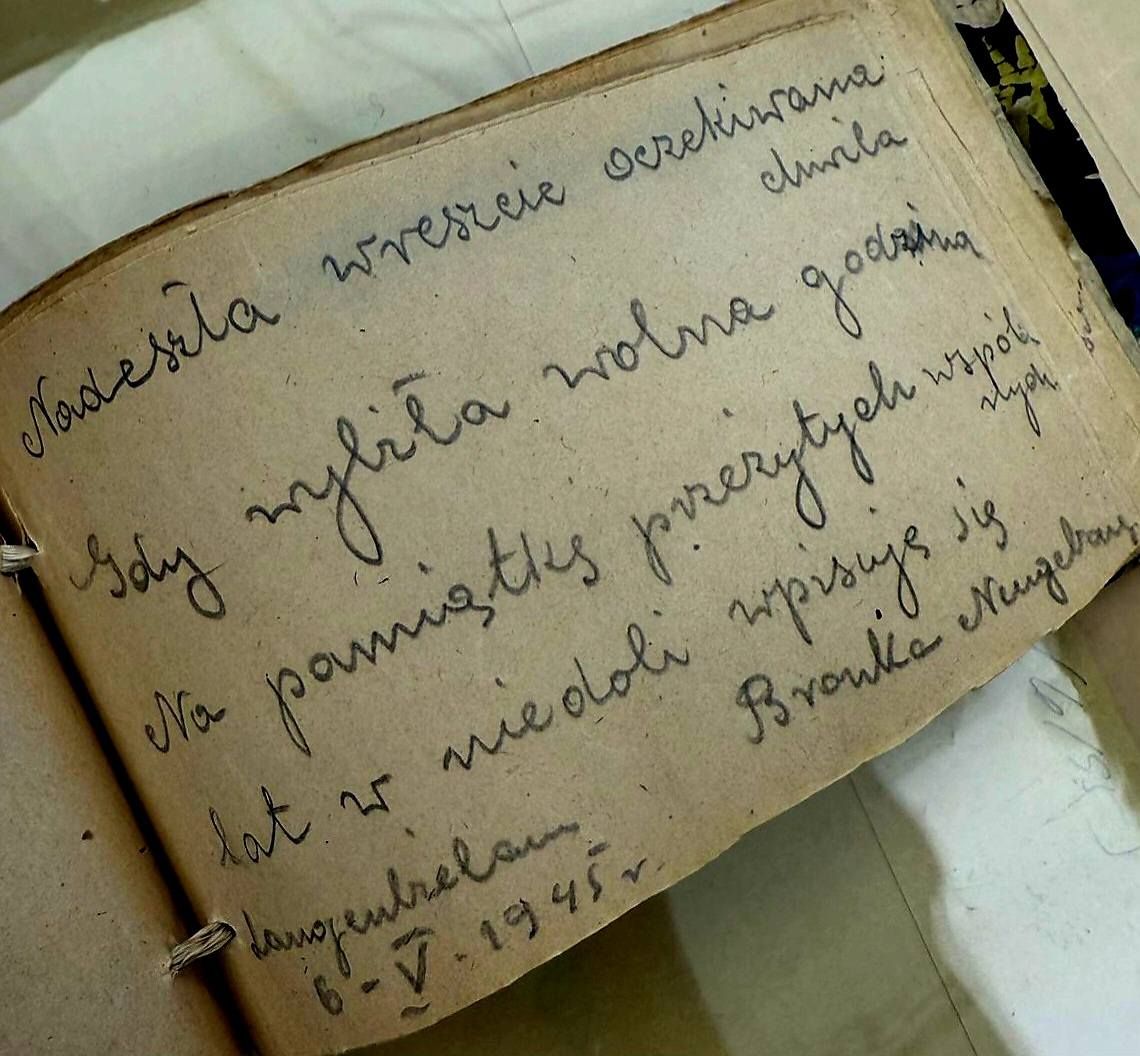 Nadeszła wreszcie oczekiwana
chwila
Gdy wybiła wolna godzina
Na pamiątkę przeżytych wspól
nych
lat w niedoli wpisuję się
Bronka
6-V. 1945 r.